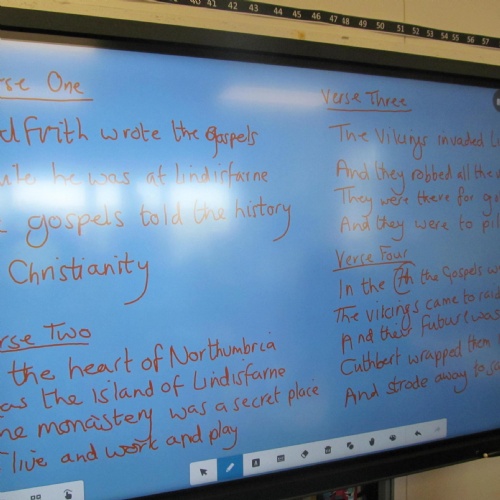 40 41 42 43 44 45 46 47 48 49 50 51 52 53 54 55 56 57
One
wrote the gospels
he was at lindisfarne
gospels told the history
Christianity
Two
the heart of Northumbria
the island of Lindisfarne
monastery was a secret place
live and work and play
Verse Three
The Vikings invaded
And they robbed all the
They were there for
And they were to
Verse Four
In the 7th the Gospels
The vikings came to
And their future was
Cuthbert wrapped them
And strode away to